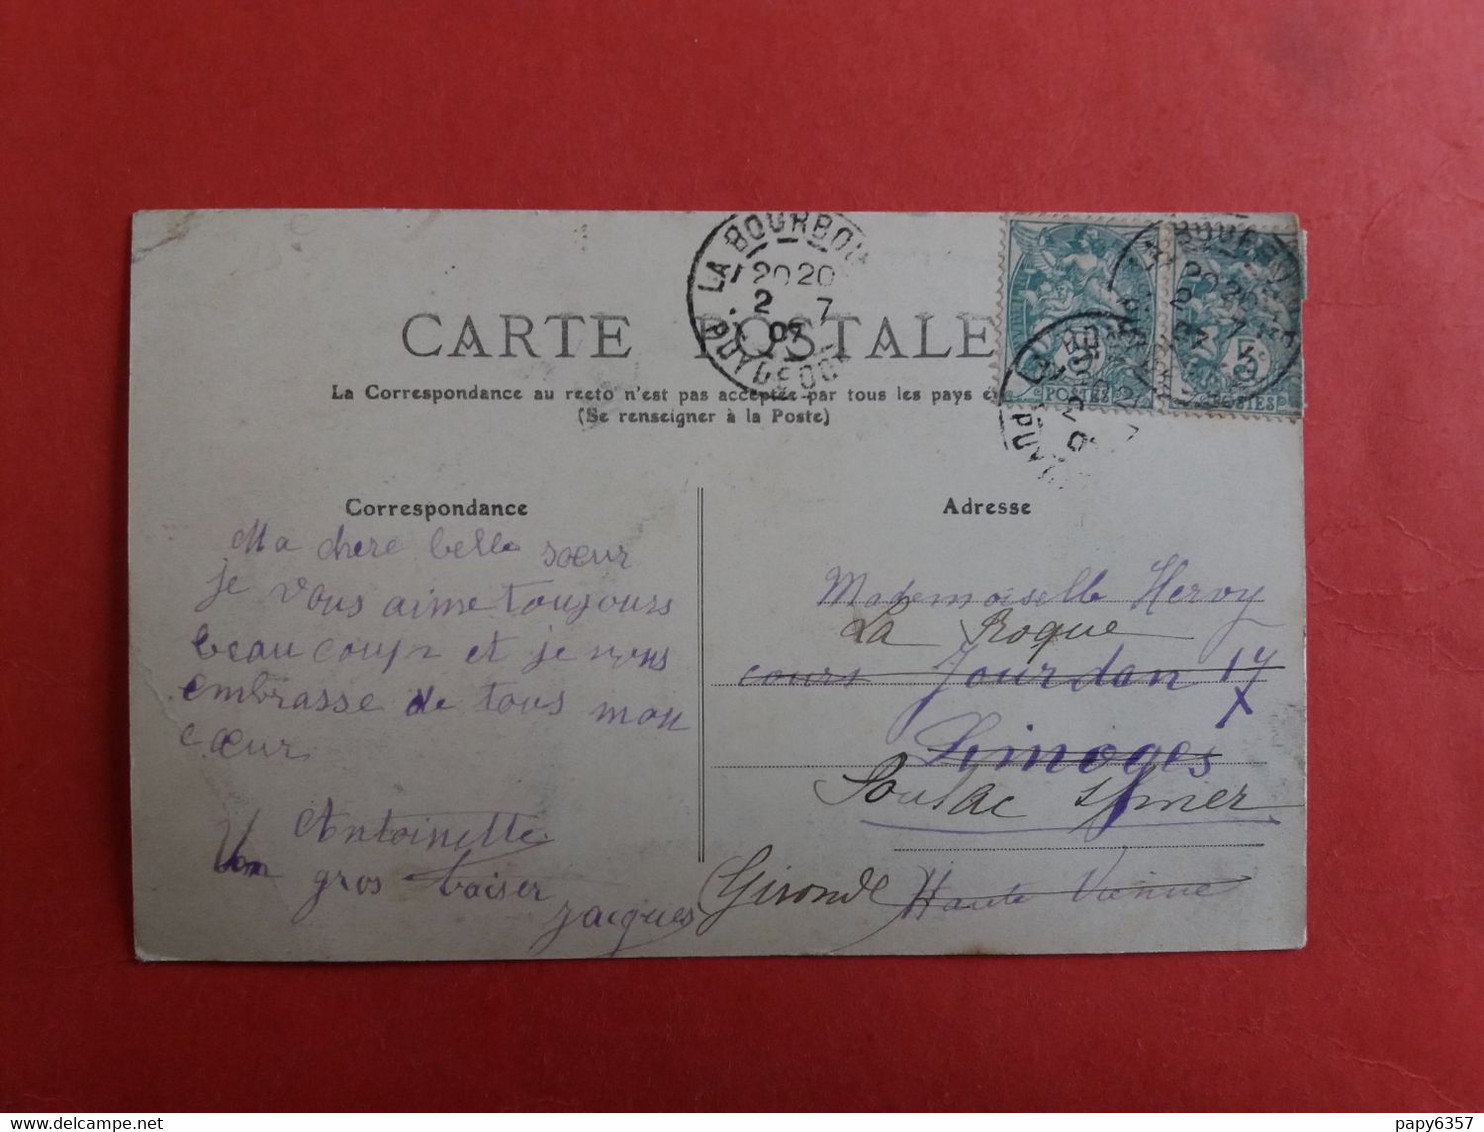 www.delcampe.net
LA BOURBOU
2020
2 7
07
PUY DE DO
CARTE POSTALE
La Correspondance au recto n'est pas acceptée par tous les pays
(Se renseigner à la Poste)
5c
POSTES
POSTES
Correspondance
Ma chere belle sœur
je vous aime toujours
beaucoup et je vous
embrasse de tous mon
cœur
Antoinette
Un gros baiser
Jacques
Adresse
Mademoiselle Hervy
La Roque
cours Jourdan 17
Limoges
Soulac s/mer
Gironde Haute Vienne
papy6357